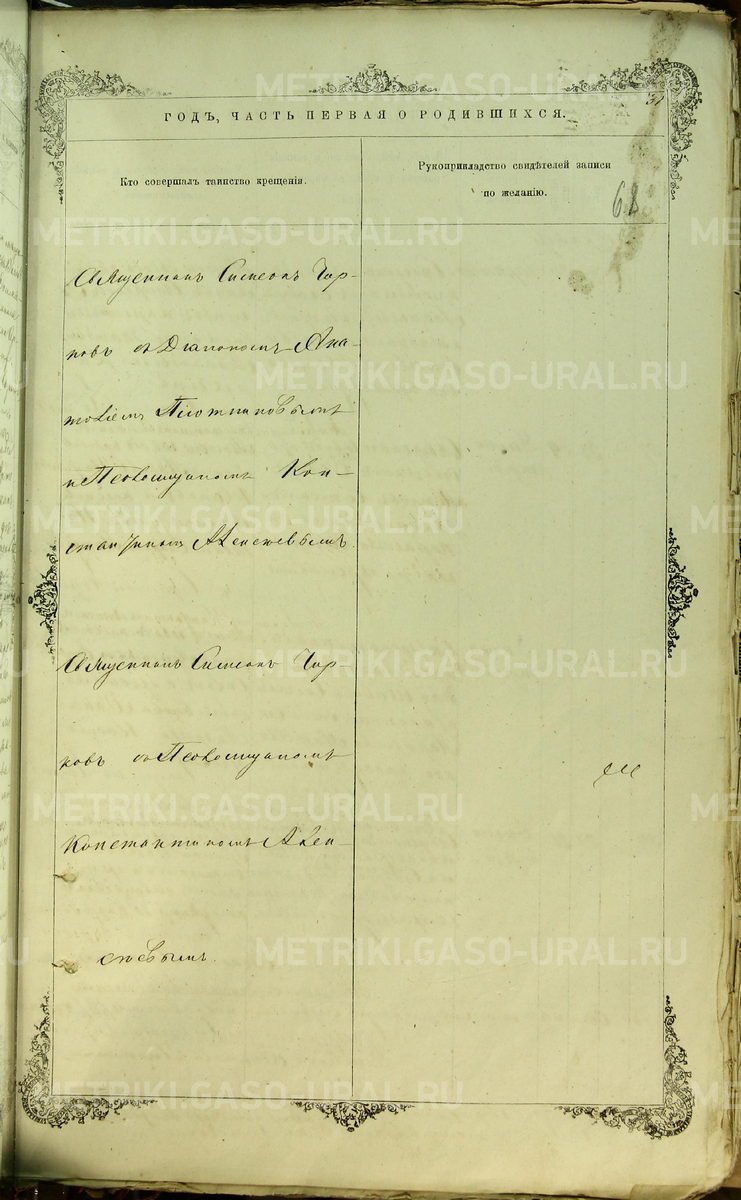 ГОДЪ, ЧАСТЬ ПЕРВАЯ О РОДИВШИХСЯ.
Кто совершалъ таинство крещенія.
Рукоприкладство свидѣтелей записи
по желанію.
68
Священникъ Симеонъ Чир-
ковъ съ Діакономъ Ана-
толіемъ Плотниковымъ
и Псаломщикомъ Кон-
стантиномъ
Священникъ Симеонъ Чир-
ковъ съ Псаломщикомъ
Константиномъ
METRIKI.GASO-URAL.RU